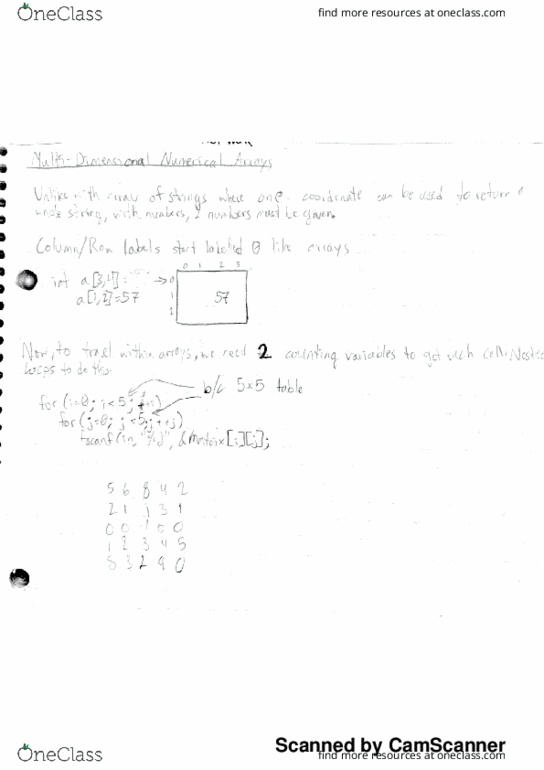 OneClass
find more resources at oneclass.com
Multi-Dimensional Numerical Arrays
Unlike with array of strings where one coordinate can be used to return a
whole string, with numbers, 2 numbers must be given.
Column/Row labels start labeled 0 like arrays
0 1 2 3
int a[3,4]= 0
a[1,2]=57 1 57
2
Now, to travel within arrays, we need 2 counting variables to get each cell. Nested
loops to do this.
b/c 5x5 table
for (i=0; i<5; i++)
for (j=0; j<5; j++)
fscanf(in, "%d", &matrix[i][j];
5 6 8 4 2
2 1 1 3 1
0 0 1 0 0
1 2 3 4 5
5 3 2 9 0
Scanned by CamScanner
OneClass
find more resources at oneclass.com